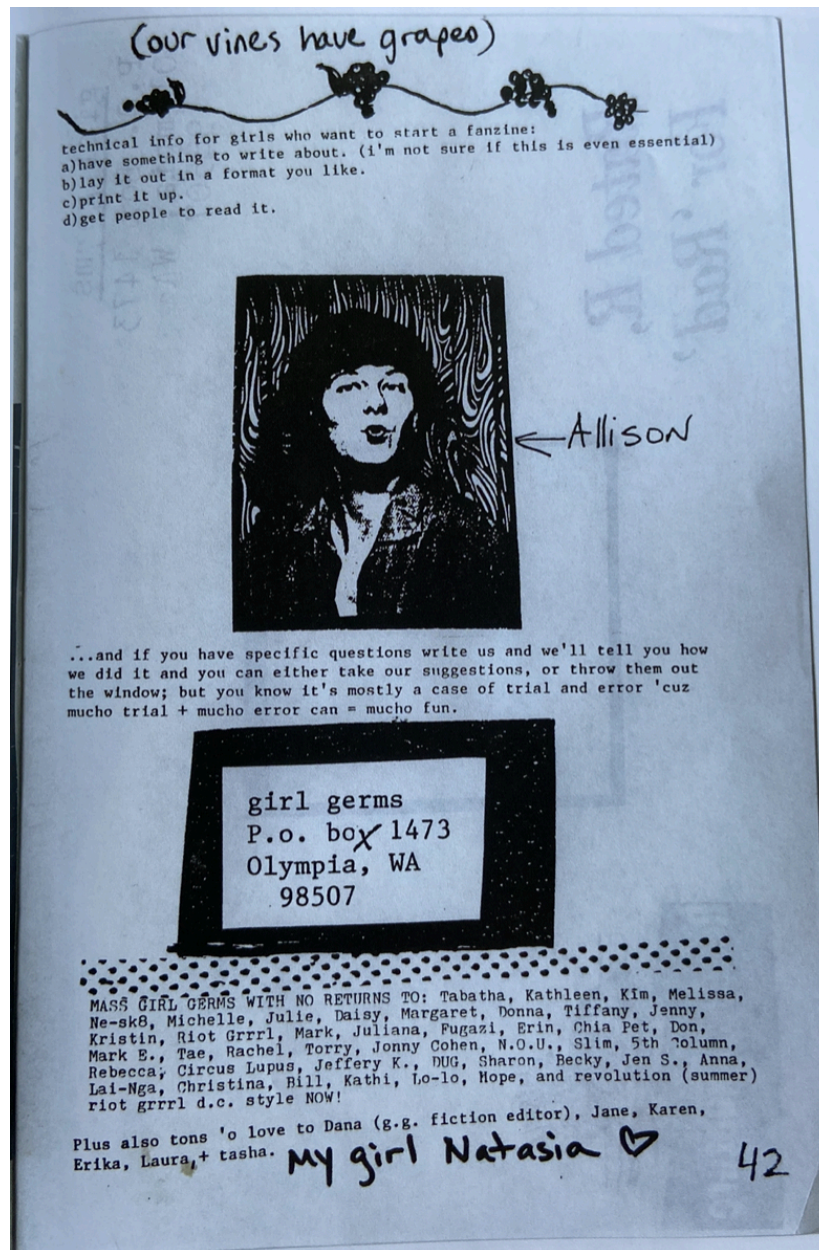 (our vines have grapes)
technical info for girls who want to start a fanzine:
a)have something to write about. (i'm not sure if this is even essential)
b)lay it out in a format you like.
c)print it up.
d)get people to read it.
←Allison
...and if you have specific questions write us and we'll tell you how
we did it and you can either take our suggestions, or throw them out
the window; but you know it's mostly a case of trial and error 'cuz
mucho trial + mucho error can = mucho fun.
girl germs
P.o. box 1473
Olympia, WA
98507
MASS GIRL GERMS WITH NO RETURNS TO: Tabatha, Kathleen, Kim, Melissa,
Ne-sk8, Michelle, Julie, Daisy, Margaret, Donna, Tiffany, Jenny,
Kristin, Riot Grrrl, Mark, Juliana, Fugazi, Erin, Chia Pet, Don,
Mark E., Tae, Rachel, Torry, Jonny Cohen, N.O.U., Slim, 5th Column,
Rebecca, Circus Lupus, Jeffery K., DUG, Sharon, Becky, Jen S., Anna,
Lai-Nga, Christina, Bill, Kathi, Lo-lo, Hope, and revolution (summer)
riot grrrl d.c. style NOW!
Plus also tons 'o love to Dana (g.g. fiction editor), Jane, Karen,
Erika, Laura,+ tasha. My girl Natasia ♡
42